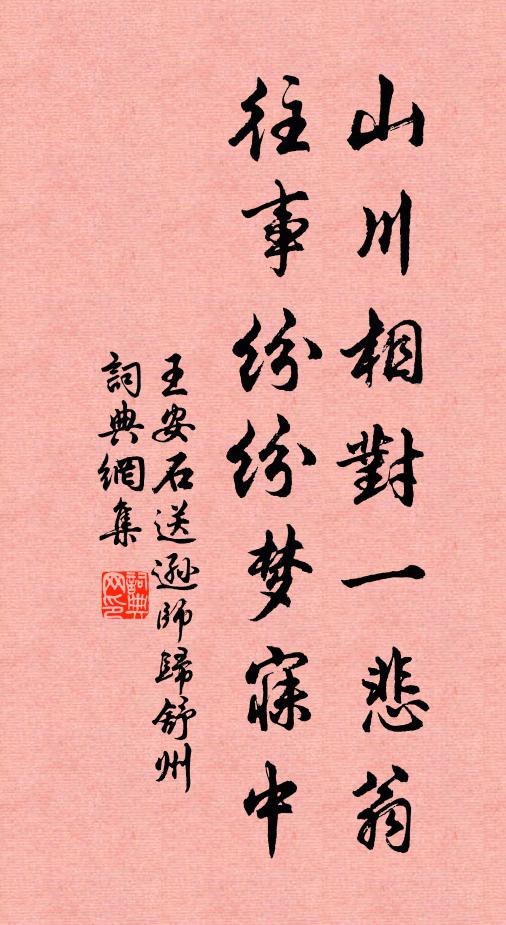 山川相對一悲翁
往事紛紛梦寐中
王安石送遜師歸舒州
詞典網集
詞典网印